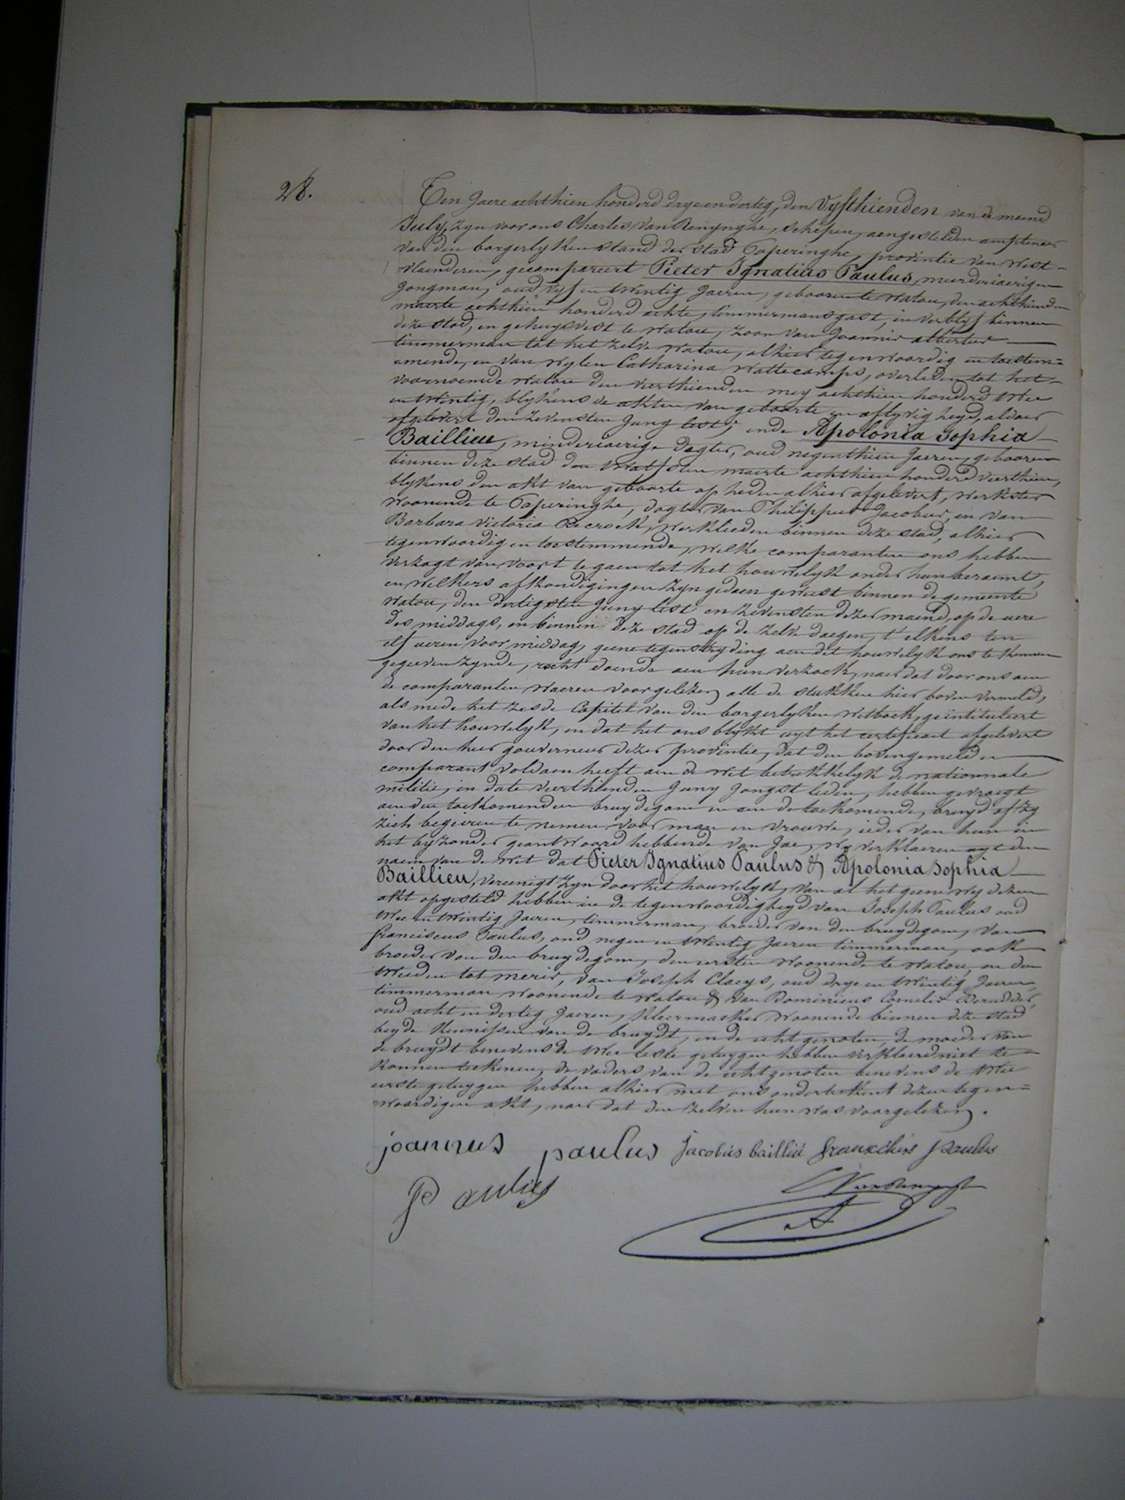 28.
Ten Jaere achthien honderd drye en dertig, den Vyfthienden van de maend
July, zyn voor ons Charles Van Renynghe, schepen, aengestelden amptenaer
van den borgerlyken stand der stad Poperinghe, provintie van West-
vlaenderen, gecompareert Pieter Ignatius Paulus, meerderjaerigen
Jongman, oud vyf en twintig Jaeren, gebooren te Watou, den achthienden
maerte achthien honderd achte, timmermansgast, in verblyf binnen
deze stad, en gehuysvest te Watou, zoon van Joannes albertus
timmerman tot het zelve Watou, alhier tegenwoordig en toestem-
mende, en van wylen Catharina Wattecamps, overleden tot het
voornoemde Watou den vierthienden mey achthien honderd twee
en twintig, blykens de akten van geboorte en aflyvigheyd, aldaer
afgelevert den zevensten Juny lest; ende Apolonia Sophia
Baillieu, minderjaerige dogter, oud negenthien Jaeren, gebooren
binnen deze stad den twaelfden maerte achthien honderd vierthien,
blykens den akt van geboorte op heden alhier afgelevert, werkster
woonende te Poperinghe, dogter van Philippus Jacobus, en van
Barbara Victoria Decrock, werklieden binnen deze stad, alhier
tegenwoordig en toestemmende, welke comparanten ons hebben
verzogt van voort te gaen tot het houwelyk onder hun beraemt,
en welkers afkondigingen zyn gedaen geweest binnen de gemeente
Watou, den dertigsten Juny lest en zevensten dezer maend, op de uere
des middags, en binnen deze stad op de zelve daegen, t'elkens ten
elf ueren voormiddag, geene tegenstryding aen dit houwelyk ons te kennen
gegeeven zynde, recht doende aen hun verzoek, naer dat door ons aen
de comparanten waeren voorgelezen alle de stukken hier boven vermeld,
als mede het zesde Capitel van den borgerlyken Wetboek, geintituleert
van het houwelyk, en dat het ons blykt uyt het certificaet afgelevert
door den heer gouverneur dezer provintie, dat den bovengemelden
comparant voldaen heeft aen de wet betrekkelyk de nationnale
militie, en date vierthienden Juny Jongst leden, hebben gevraegt
aen den toekomenden bruydegom en aen de toekomende bruyd of zy
zich begeeren te nemen voor man en vrouwe, ieder van hun in
het byzonder geantwoord hebbende van Jae, wy verklaeren uyt den
naem van de wet dat Pieter Ignatius Paulus & Apolonia Sophia
Baillieu, vereenigt zyn door het houwelyk, van al het geene wy dezen
akt opgesteld hebben in de tegenwoordigheyd van Joseph Paulus oud
twee en twintig Jaeren, timmerman, broeder van den bruydegom, van
franciscus Paulus, oud negen en twintig Jaeren timmerman, ook
broeder van den bruydegom, den eersten woonende te Watou, en den
tweeden tot Meren, van Joseph Claeys, oud drye en twintig Jaeren,
timmerman woonende te Watou & van Dominicus Cornelis
oud acht en dertig Jaeren, kleermaeker woonende binnen deze stad
beyde kennissen van de bruydt, ende echtgenoten, de moeder van
de bruydt benevens de twee leste getuygen hebben verklaerd niet te
konnen teekenen, de vaders van de echtgenoten benevens de twee
eerste getuygen hebben alhier met ons onderteekent dezen tegen-
woordigen akt, naer dat den zelven hun was voorgelezen.
joannes paulus jacobús baillíú franschis paulus